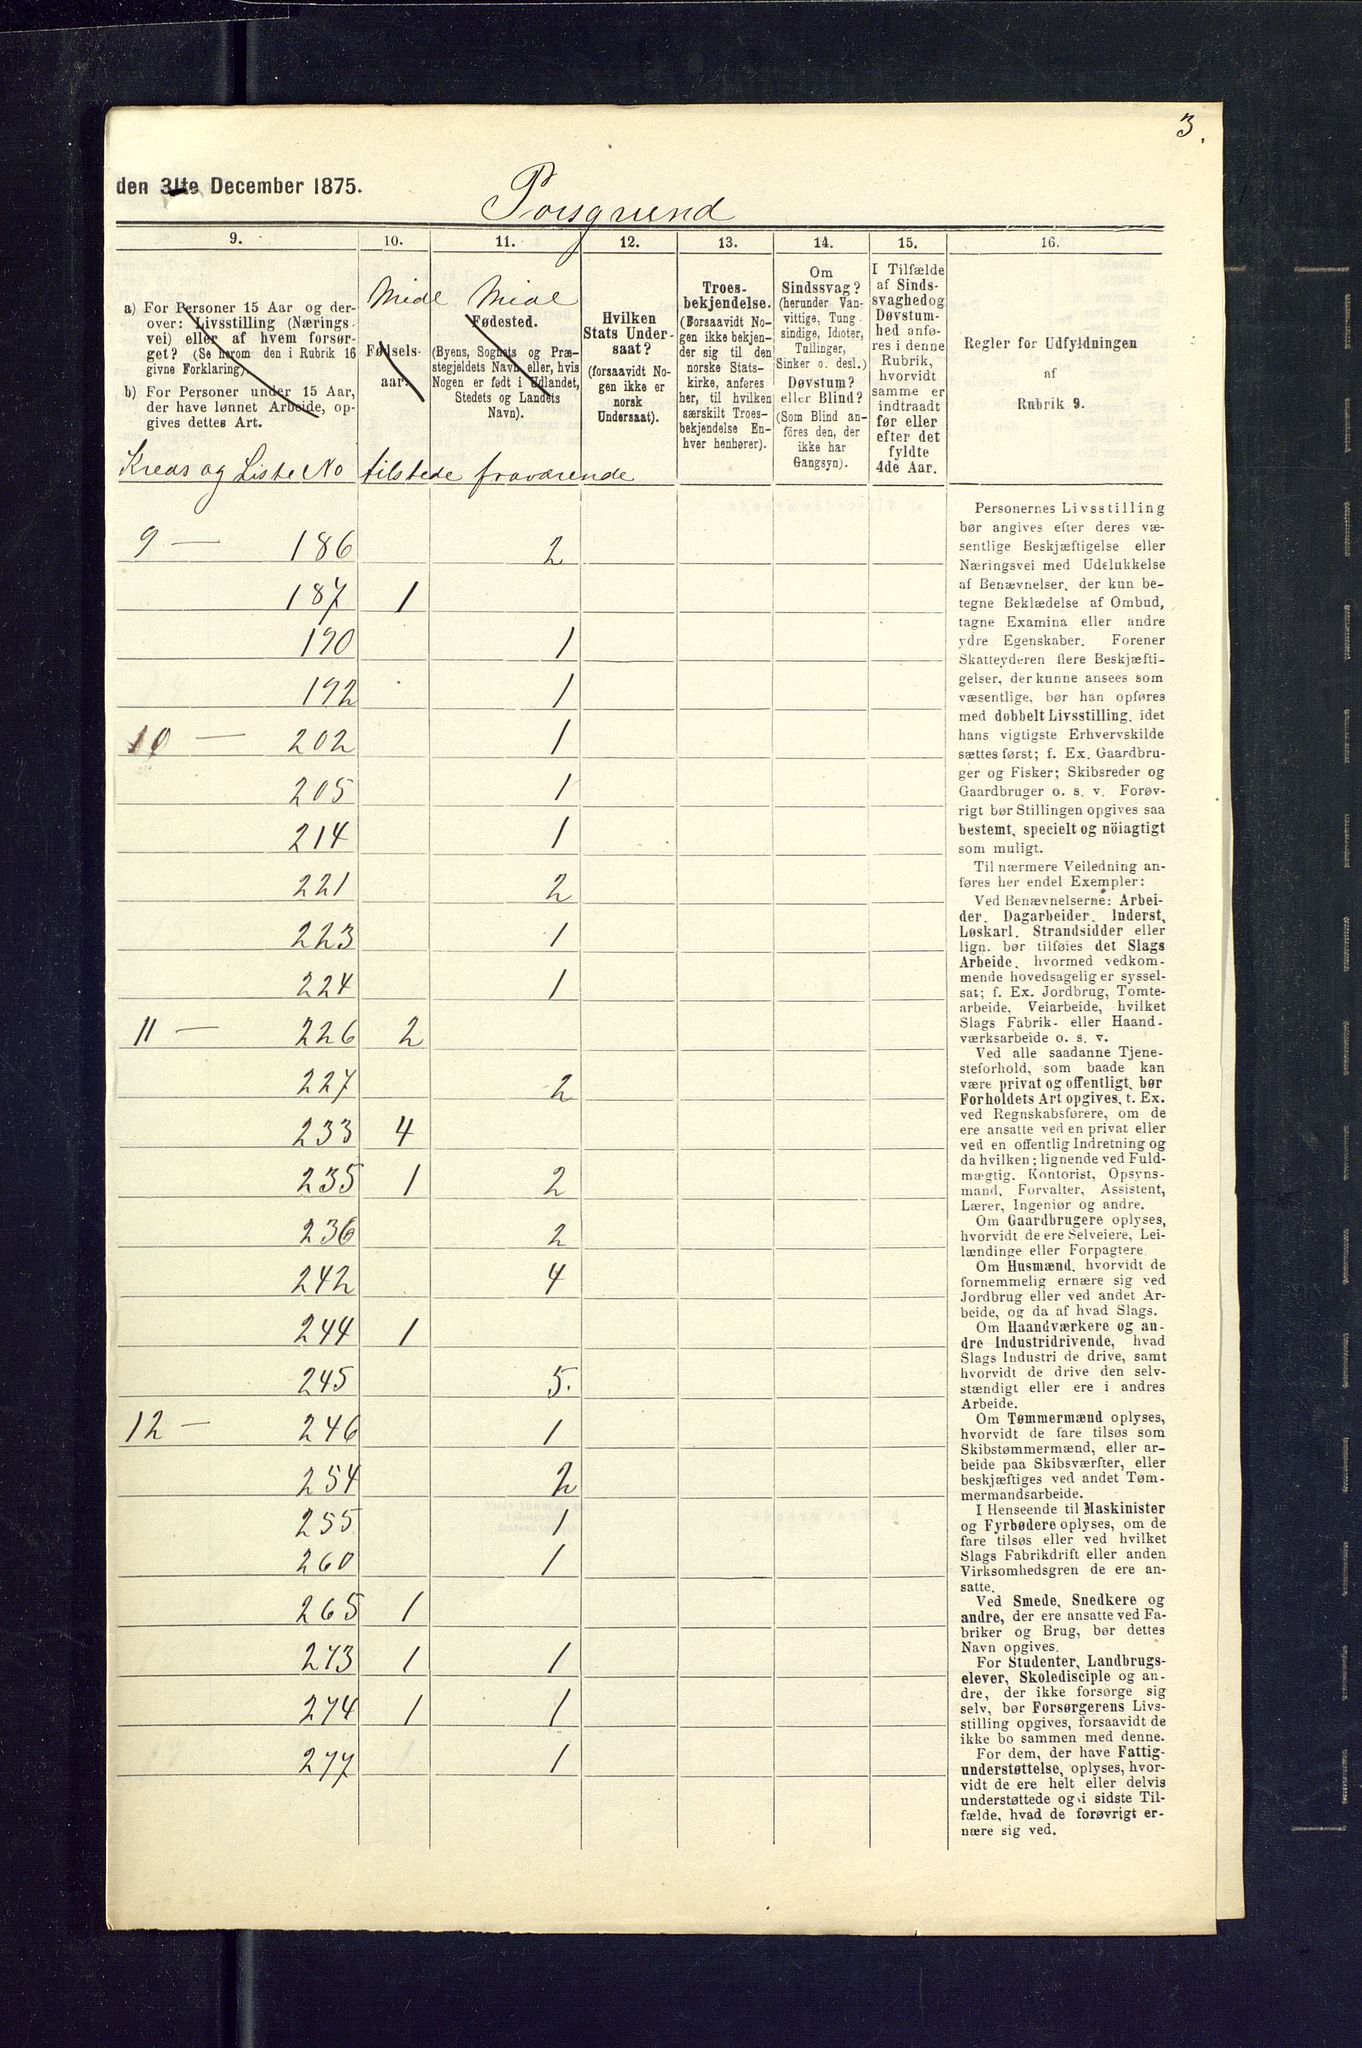 3.
den 31te December 1875.
Porsgrund
9.
a) For Personer 15 Aar og der-
over: Livsstilling (Nærings-
vei) eller af hvem forsør-
get? (Se herom den i Rubrik 16
givne Forklaring).
b) For Personer under 15 Aar,
der have lønnet Arbeide, op-
gives dettes Art.
10.
Midl
Fødsels-
aar.
11.
Midl
Fødested.
(Byens, Sognets og Præ-
stegjeldets Navn eller, hvis
Nogen er født i Udlandet,
Stedets og Landets
Navn).
12.
Hvilken
Stats Under-
saat?
(forsaavidt No-
gen ikke er
norsk
Undersaat).
13.
Troes-
bekjendelse.
(Forsaavidt No-
gen ikke bekjen-
der sig til den
norske Stats-
kirke, anføres
her, til hvilken
særskilt Troes-
bekjendelse En-
hver henhører).
14.
Om
Sindssvag?
(herunder Van-
vittige, Tung-
sindige, Idioter,
Tullinger,
Sinker o. desl.)
Døvstum?
eller Blind?
(Som Blind an-
föres den, der
ikke har
Gangsyn).
15.
I Tilfælde
af Sinds-
svaghed og
Døvstum-
hed anfø-
res i denne
Rubrik,
hvorvidt
samme er
indtraadt
før eller
efter det
fyldte
4de Aar.
16.
Regler for Udfyldningen
af
Rubrik 9.
Kreds og Liste No tilstede fraværende
9 — 186 2
187 1
190 1
192 1
10 — 202 1
205 1
214 1
221 2
223 1
224 1
11 — 226 2
227 2
233 4
235 1 2
236 2
242 4
244 1
245 5.
12 — 246 1
254 2
255 1
260 1
265 1
273 1 1
274 1 1
277 1
Personernes Livsstilling
bør angives efter deres væ-
sentlige Beskjæftigelse eller
Næringsvei med Udelukkelse
af Benævnelser, der kun be-
tegne Beklædelse af Ombud,
tagne Examina eller andre
ydre Egenskaber. Forener
Skatteyderen flere Beskjæfti-
gelser, der kunne ansees som
væsentlige, bør han opføres
med dobbelt Livsstilling, idet
hans vigtigste Erhvervskilde
sættes først; f. Ex. Gaardbru-
ger og Fisker; Skibsreder og
Gaardbruger o. s. v. Forøv-
rigt bør Stillingen opgives saa
bestemt, specielt og nöiagtigt
som muligt.
Til nærmere Veiledning an-
føres her endel Exempler:
Ved Benævnelserne: Arbei-
der, Dagarbeider, Inderst,
Løskarl, Strandsidder eller
lign. bør tilføies det Slags
Arbeide, hvormed vedkom-
mende hovedsagelig er syssel-
sat; f. Ex. Jordbrug, Tomte-
arbeide, Veiarbeide, hvilket
Slags Fabrik- eller Haand-
værksarbeide o. s. v.
Ved alle saadanne Tjene-
steforhold, som baade kan
være privat og offentligt, bør
Forholdets Art opgives, t. Ex.
ved Regnskabsførere, om de
ere ansatte ved en privat eller
ved en offentlig Indretning og
da hvilken; lignende ved Fuld-
mægtig, Kontorist, Opsyns-
mand, Forvalter, Assistent,
Lærer, Ingeniør og andre.
Om Gaardbrugere oplyses,
hvorvidt de ere Selveiere, Lei-
lændinge eller Forpagtere.
Om Husmænd, hvorvidt de
fornemmelig ernære sig ved
Jordbrug eller ved andet Ar-
beide, og da af hvad Slags.
Om Haandværkere og an-
dre Industridrivende, hvad
Slags Industri de drive, samt
hvorvidt de drive den selv-
stændigt eller ere i andres
Arbeide.
Om Tømmermænd oplyses,
hvorvidt de fare tilsøs som
Skibstømmermænd, eller ar-
beide paa Skibsværfter, eller
beskjæftiges ved andet Tøm-
mermandsarbeide.
I Henseende til Maskinister
og Fyrbødere oplyses, om de
fare tilsøs eller ved hvilket
Slags Fabrikdrift eller anden
Virksomhedsgren de ere an-
satte.
Ved Smede, Snedkere og
andre, der ere ansatte ved Fa-
briker og Brug, bør dettes
Navn opgives.
For Studenter, Landbrugs-
elever, Skoledisciple og an-
dre, der ikke forsørge sig
selv, bør Forsørgerens Livs-
stilling opgives, forsaavidt de
ikke bo sammen med denne.
For dem, der have Fattig-
understøttelse, oplyses, hvor-
vidt de ere helt eller delvis
understøttede og i sidste Til-
fælde, hvad de forøvrigt er-
nære sig ved.